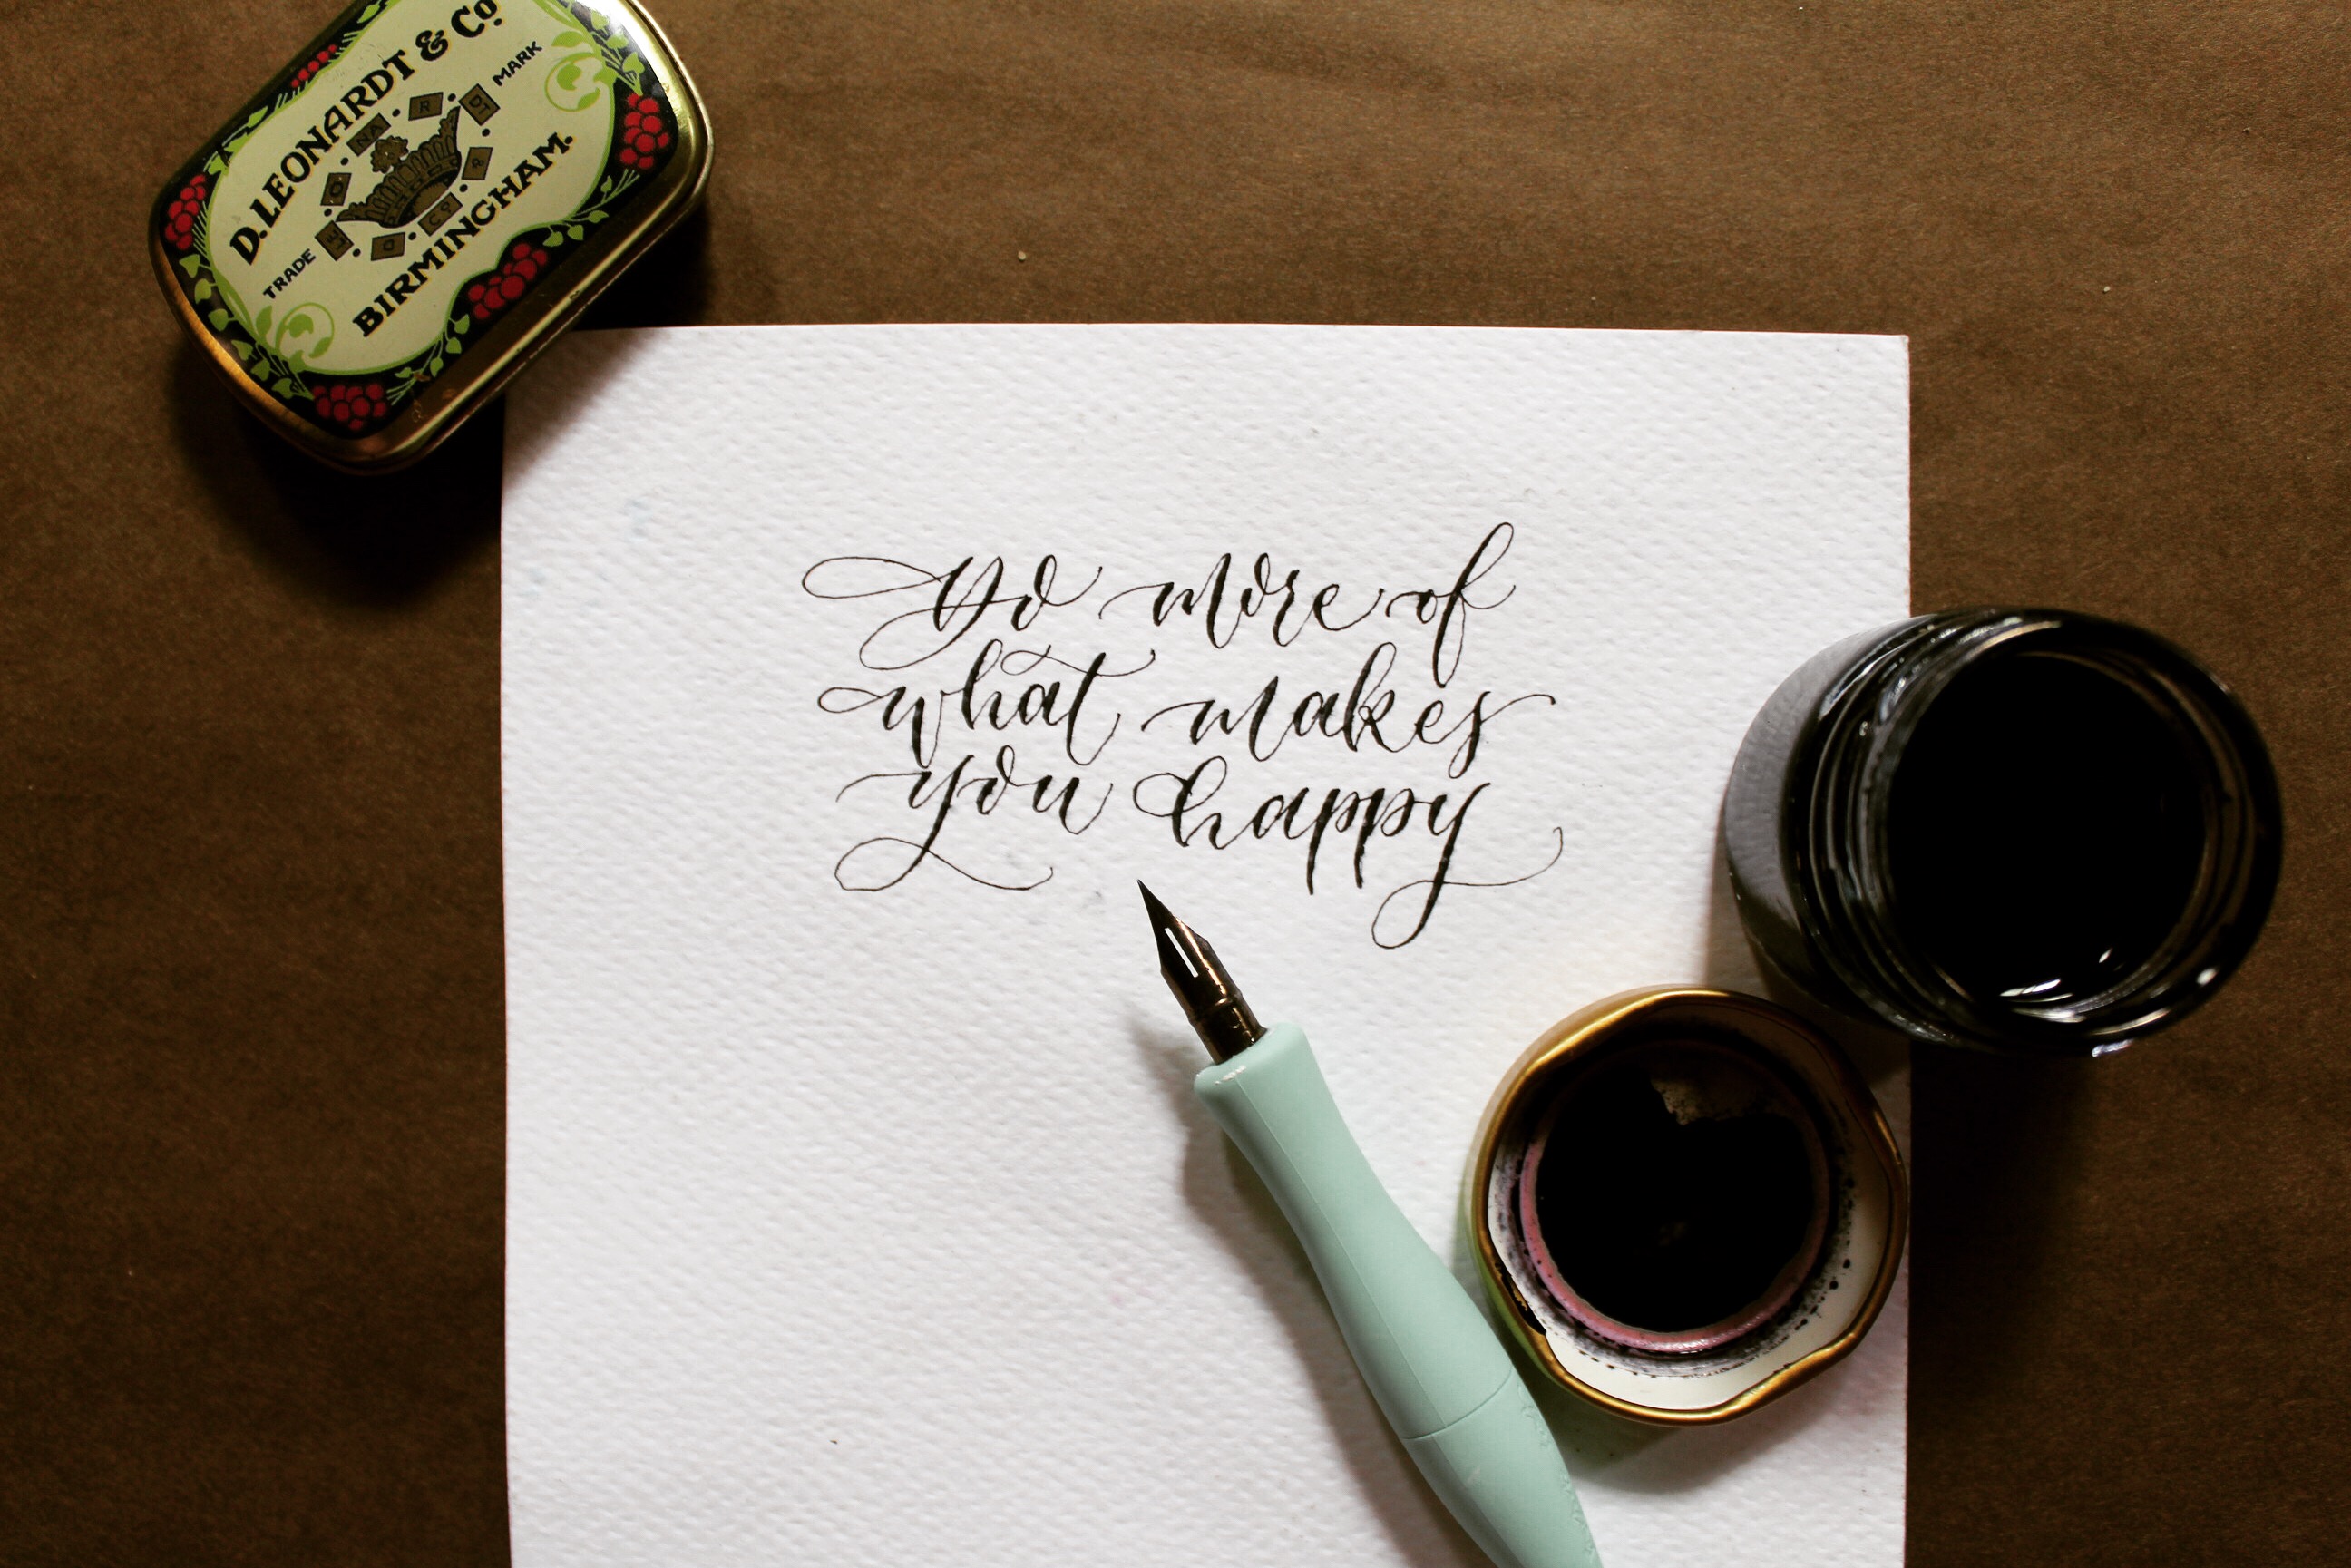 D. LEONARDT & Co
TRADE MARK
BIRMINGHAM.
Do more of
what makes
you happy